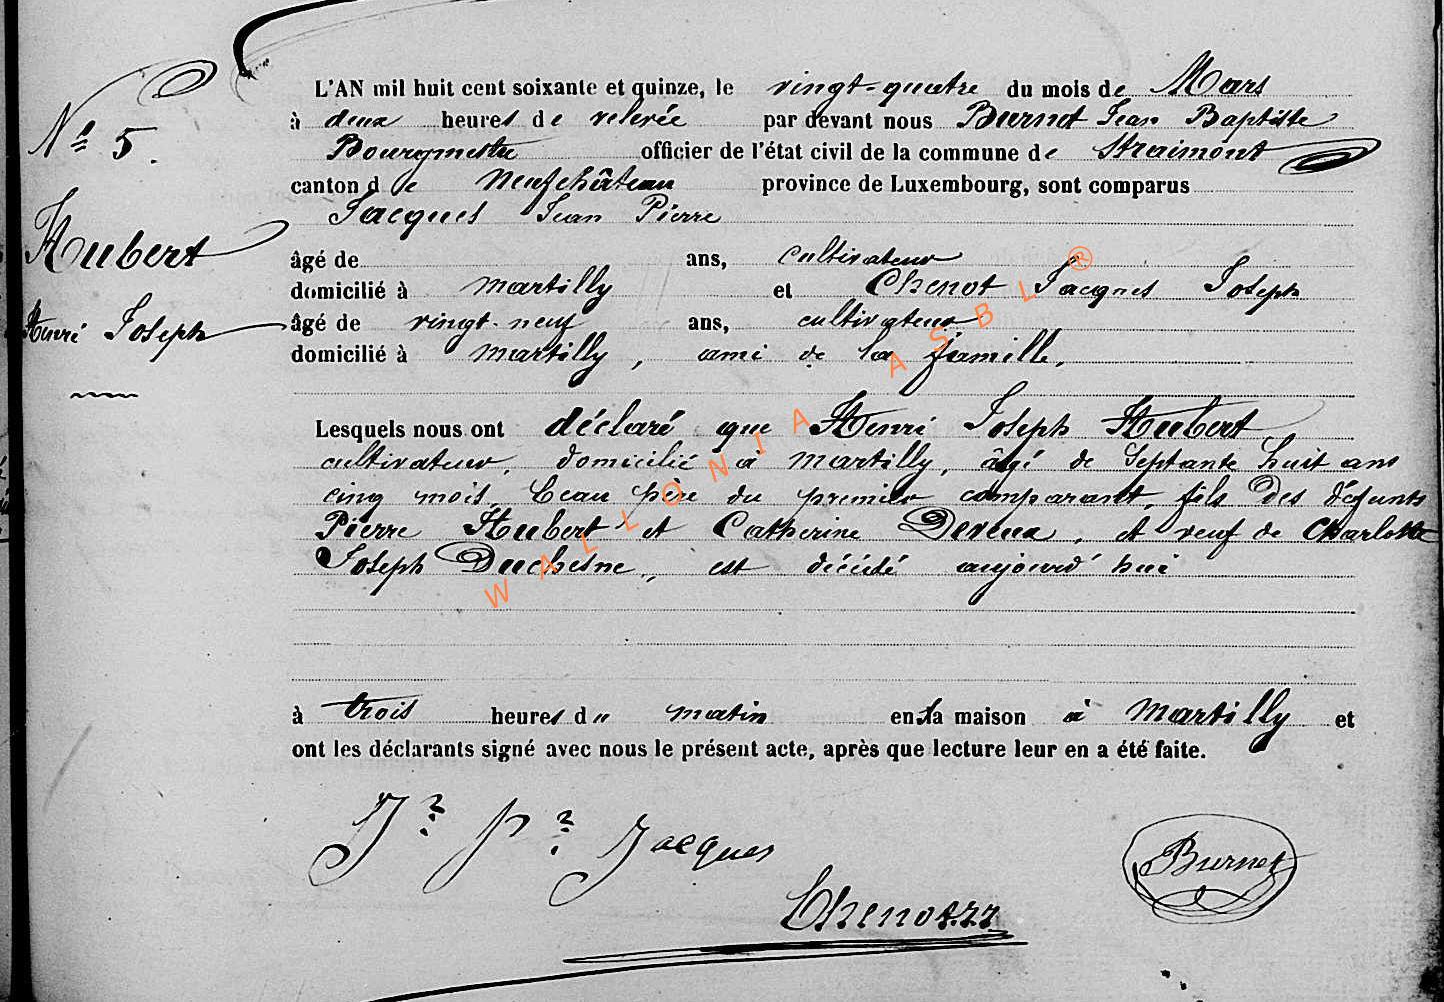 L'AN mil huit cent soixante et quinze, le vingt-quatre du mois de Mars
à deux heures de relevée par devant nous Burnet Jean Baptiste
Nº 5.
Bourgmestre officier de l'état civil de la commune de Straimont
canton de Neufchâteau province de Luxembourg, sont comparus
Jacques Jean Pierre
Hubert
âgé de ans, cultivateur
domicilié à Martilly et Chenot Jacques Joseph
Henri Joseph
âgé de vingt-neuf ans, cultivateur
domicilié à Martilly, ami de la famille,
Lesquels nous ont déclaré que Henri Joseph Hubert
cultivateur, domicilié à Martilly, âgé de septante huit ans
cinq mois, beau père du premier comparant, fils des défunts
Pierre Hubert et Catherine Dereux, et veuf de Charlotte
Joseph Duchesne, est décédé aujourd'hui
à trois heures du matin en sa maison à Martilly et
ont les déclarants signé avec nous le présent acte, après que lecture leur en a été faite.
Jn Pre Jacques
Burnet
Chenot
WALLONIA ASBL ®